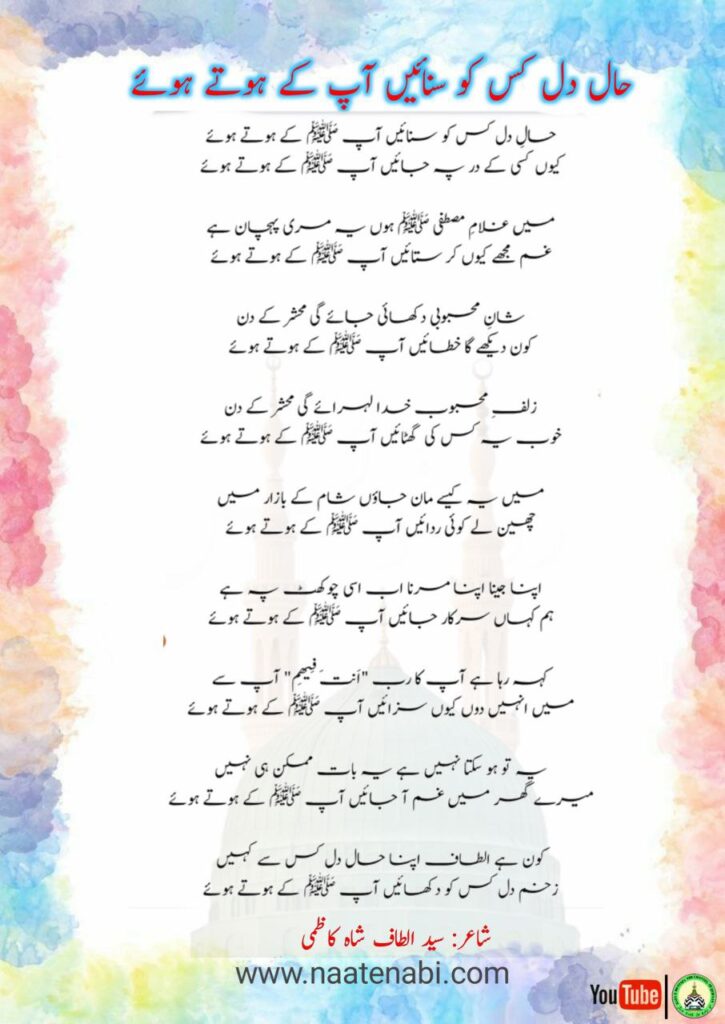 حال دل کس کو سنائیں آپ کے ہوتے ہوئے
حالِ دل کس کو سنائیں آپ ﷺ کے ہوتے ہوئے
کیوں کسی کے در پہ جائیں آپ ﷺ کے ہوتے ہوئے
میں غلامِ مصطفی ﷺ ہوں یہ مری پہچان ہے
غم مجھے کیوں کر ستائیں آپ ﷺ کے ہوتے ہوئے
شانِ محبوبی دکھائی جائے گی محشر کے دن
کون دیکھے گا خطائیں آپ ﷺ کے ہوتے ہوئے
زلفِ محبوب خدا لہرائے گی محشر کے دن
خوب یہ کس کی گھٹائیں آپ ﷺ کے ہوتے ہوئے
میں یہ کیسے مان جاؤں شام کے بازار میں
چھین لے کوئی ردائیں آپ ﷺ کے ہوتے ہوئے
اپنا جینا اپنا مرنا اب اسی چوکھٹ پہ ہے
ہم کہاں سرکار جائیں آپ ﷺ کے ہوتے ہوئے
کہہ رہا ہے آپ کا رب "اَنتَ فِیھِم" آپ سے
میں انہیں دوں کیوں سزائیں آپ ﷺ کے ہوتے ہوئے
یہ تو ہو سکتا نہیں ہے یہ بات ممکن ہی نہیں
میرے گھر میں غم آ جائیں آپ ﷺ کے ہوتے ہوئے
کون ہے الطاف اپنا حال دل کس سے کہیں
زخم دل کس کو دکھائیں آپ ﷺ کے ہوتے ہوئے
شاعر: سید الطاف شاہ کاظمی
www.naatenabi.com
YouTube